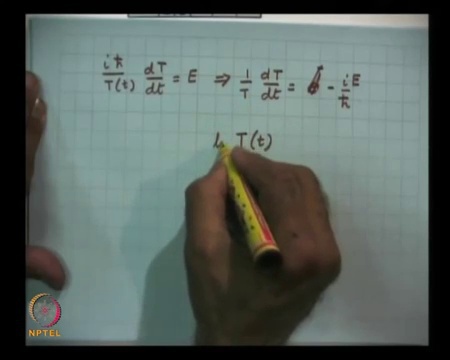 iħ/T(t) dT/dt = E ⇒ 1/T dT/dt = - iE/ħ
T(t)
NPTEL